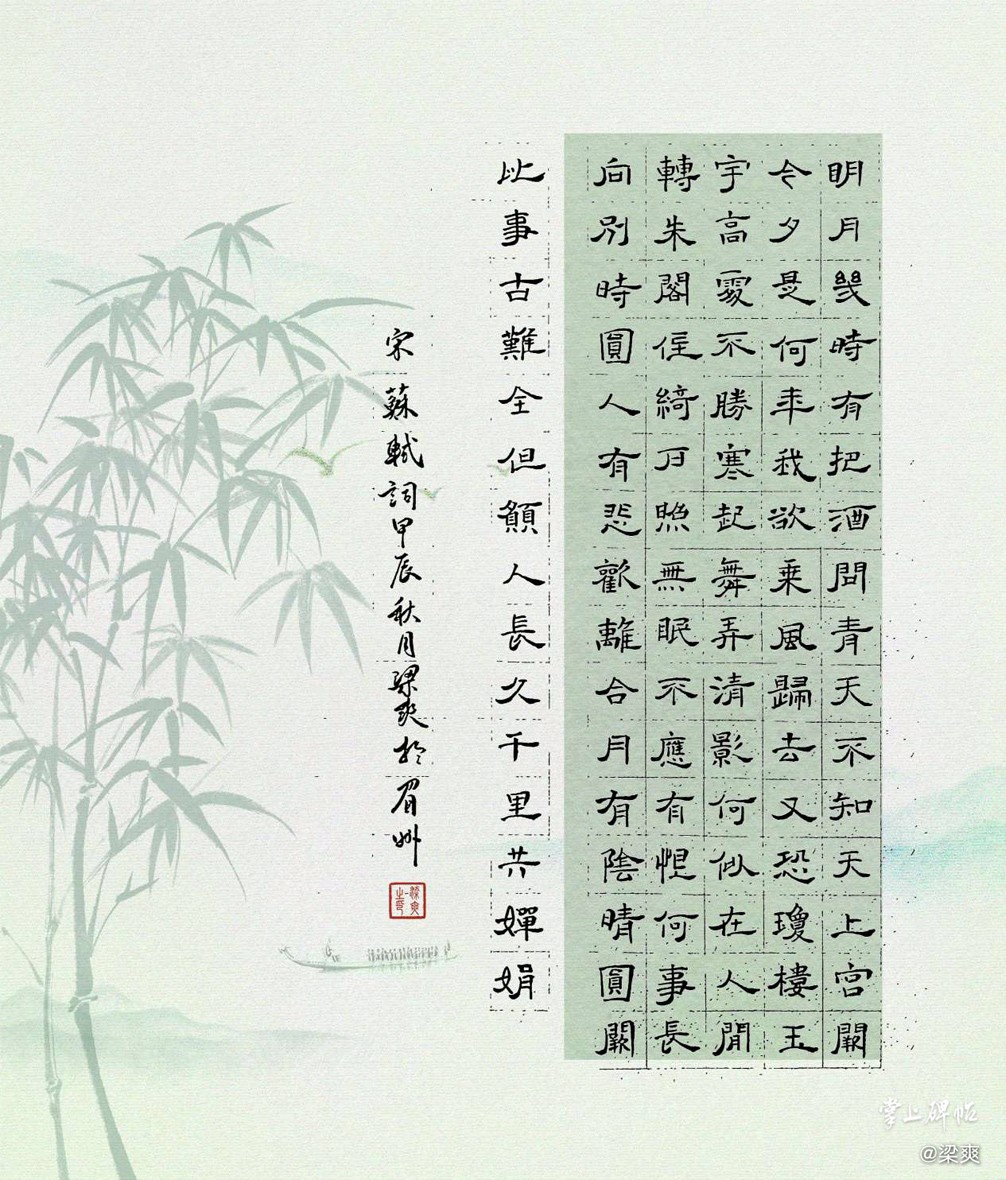 明月幾時有把酒問青天不知天上宮闕
今夕是何年我欲乗風歸去又恐瓊樓玉
宇高處不勝寒起舞弄清影何似在人間
轉朱閣低綺戶照無眠不應有恨何事長
向別時圓人有悲歡離合月有陰晴圓闕
此事古難全但願人長久千里共嬋娟
宋蘇軾詞甲辰秋月梁爽於眉州
掌上碑帖
@梁爽